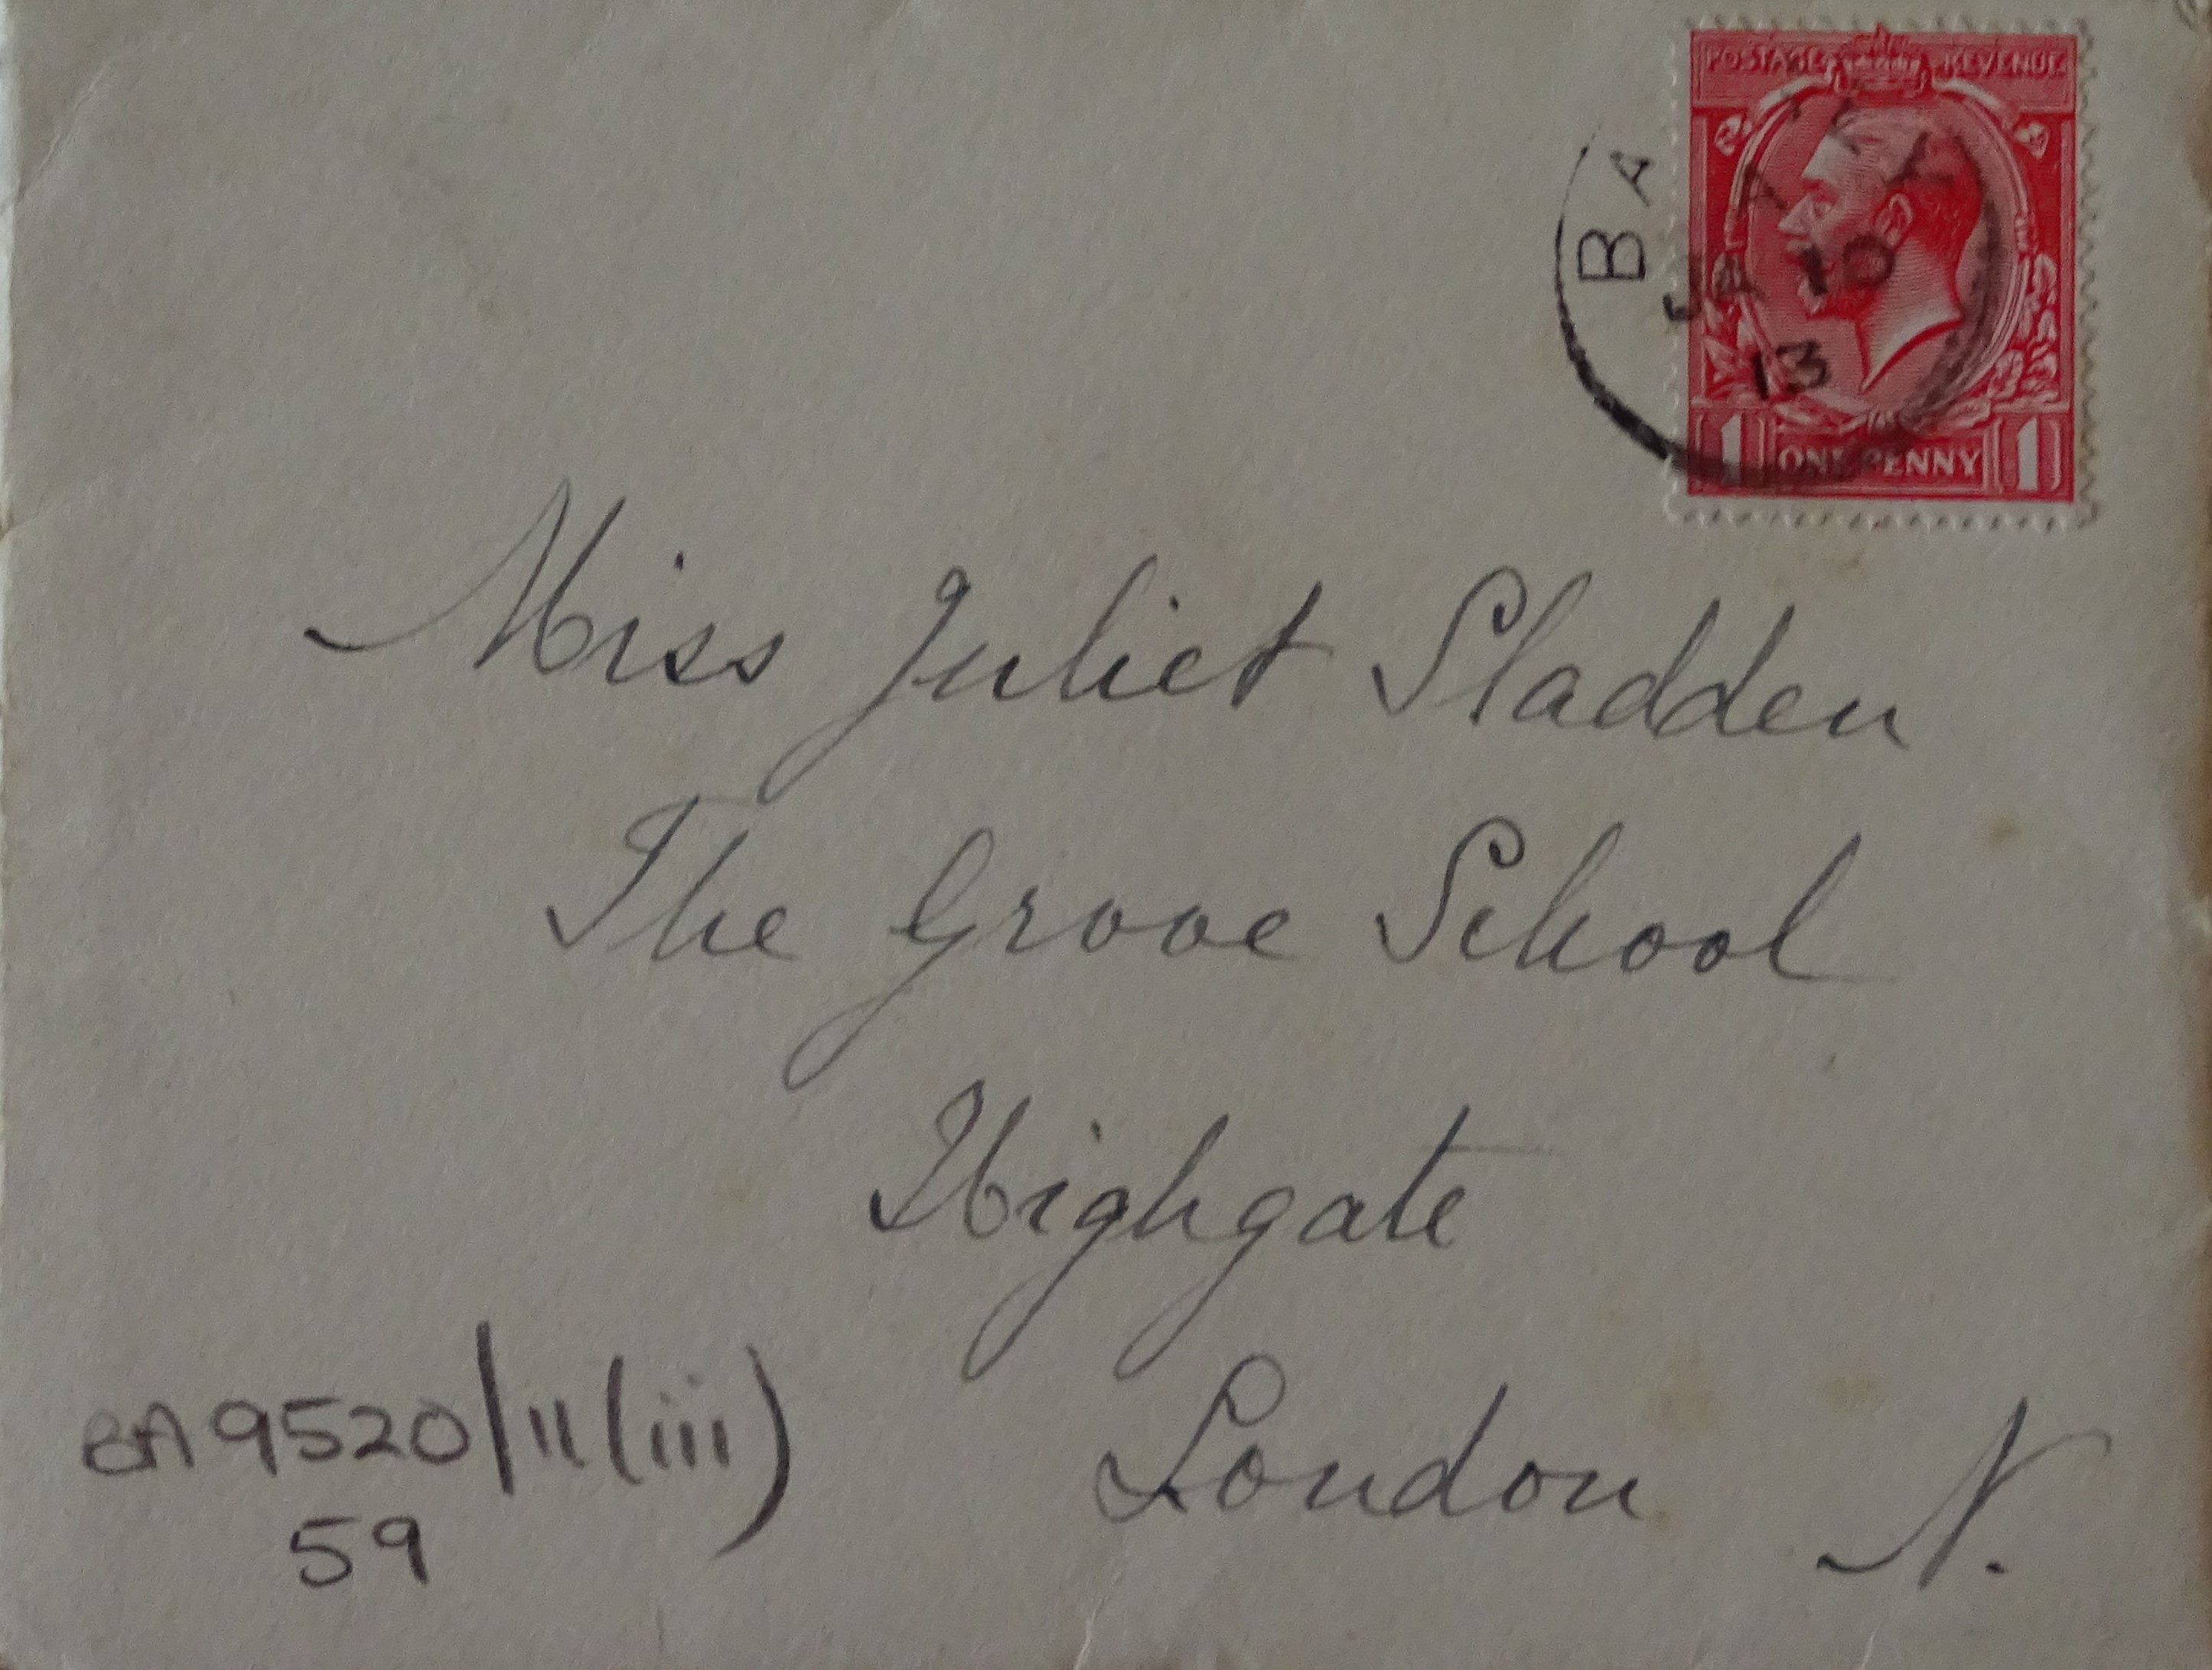 POSTAGE REVENUE
BA
JA 10
13
1 ONE PENNY 1
Miss Juliet Sladden
The Grove School
Highgate
London N.
BA9520/11(iii)
59